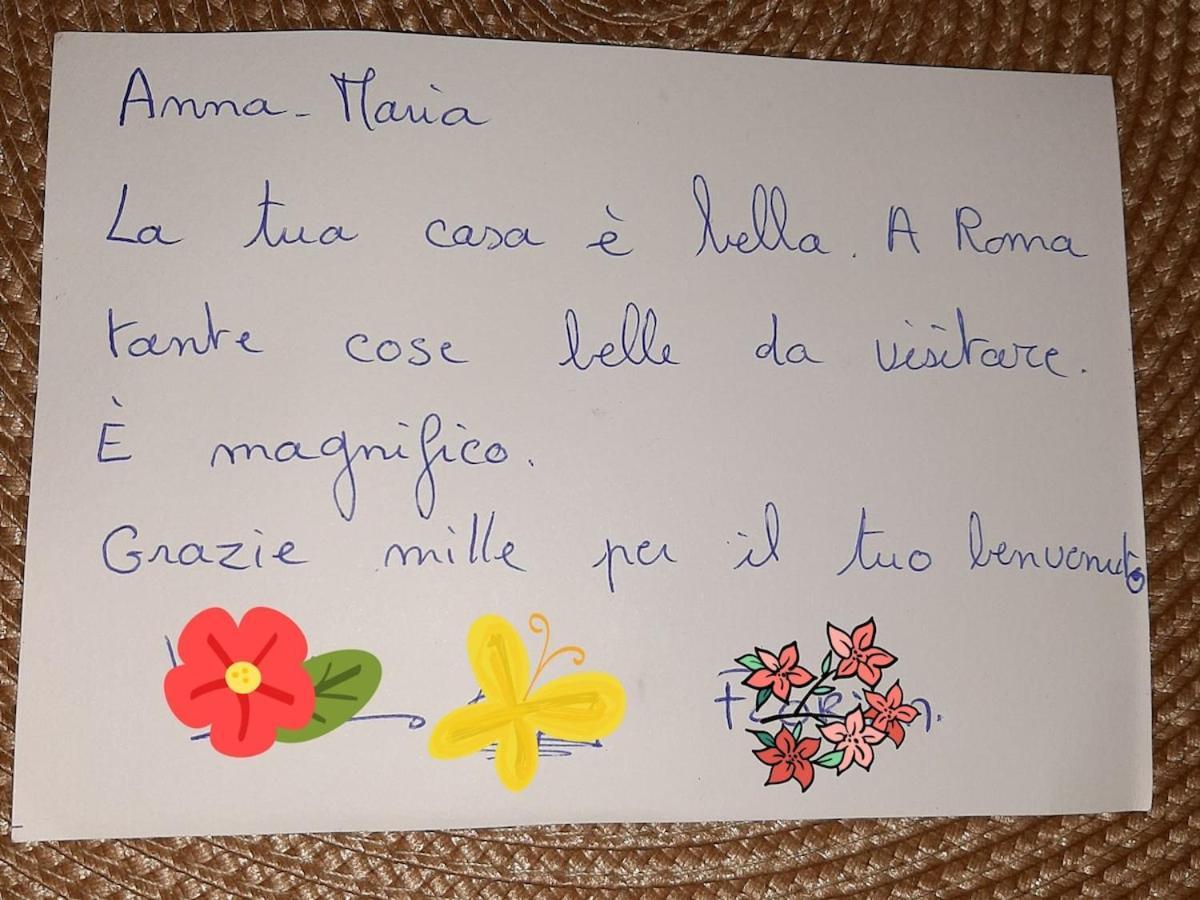 Anna-Maria
La tua casa è bella. A Roma
tante cose belle da visitare.
È magnifico.
Grazie mille per il tuo benvenuto